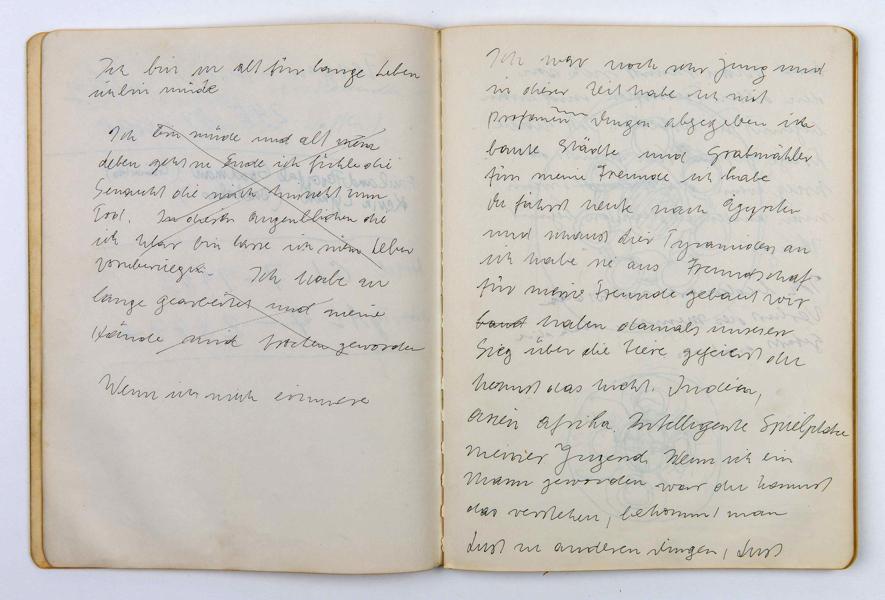 Ich bin zu alt für lange Leben
ich bin müde
Ich bin müde und alt mein
Leben geht zu Ende ich fühle die
Sehnsucht die mich hinzieht zum
Tod. In diesen Augenblicken die
ich klar bin lasse ich mein Leben
vorüberziegen. Ich habe zu
lange gearbeitet und meine
Hände sind trocken geworden
Wenn ich mich erinnere
Ich war noch sehr jung und
in dieser Zeit habe ich mit
profanen Dingen abgegeben ich
baute Städte und Grabmähler
für meine Freunde ich habe
Du fährst heute nach Ägypten
und schaust dir Pyramiden an
ich habe sie aus Freundschaft
für meine Freunde gebaut wir
haben damals unseren
Sieg über die Tiere gefeiert du
kennst das nicht. Indien,
asien afrika Intelligente Spielplätze
meiner Jugend Wenn ich ein
Mann geworden war du kannst
das verstehen, bekommt man
Lust zu anderen Dingen, Lust